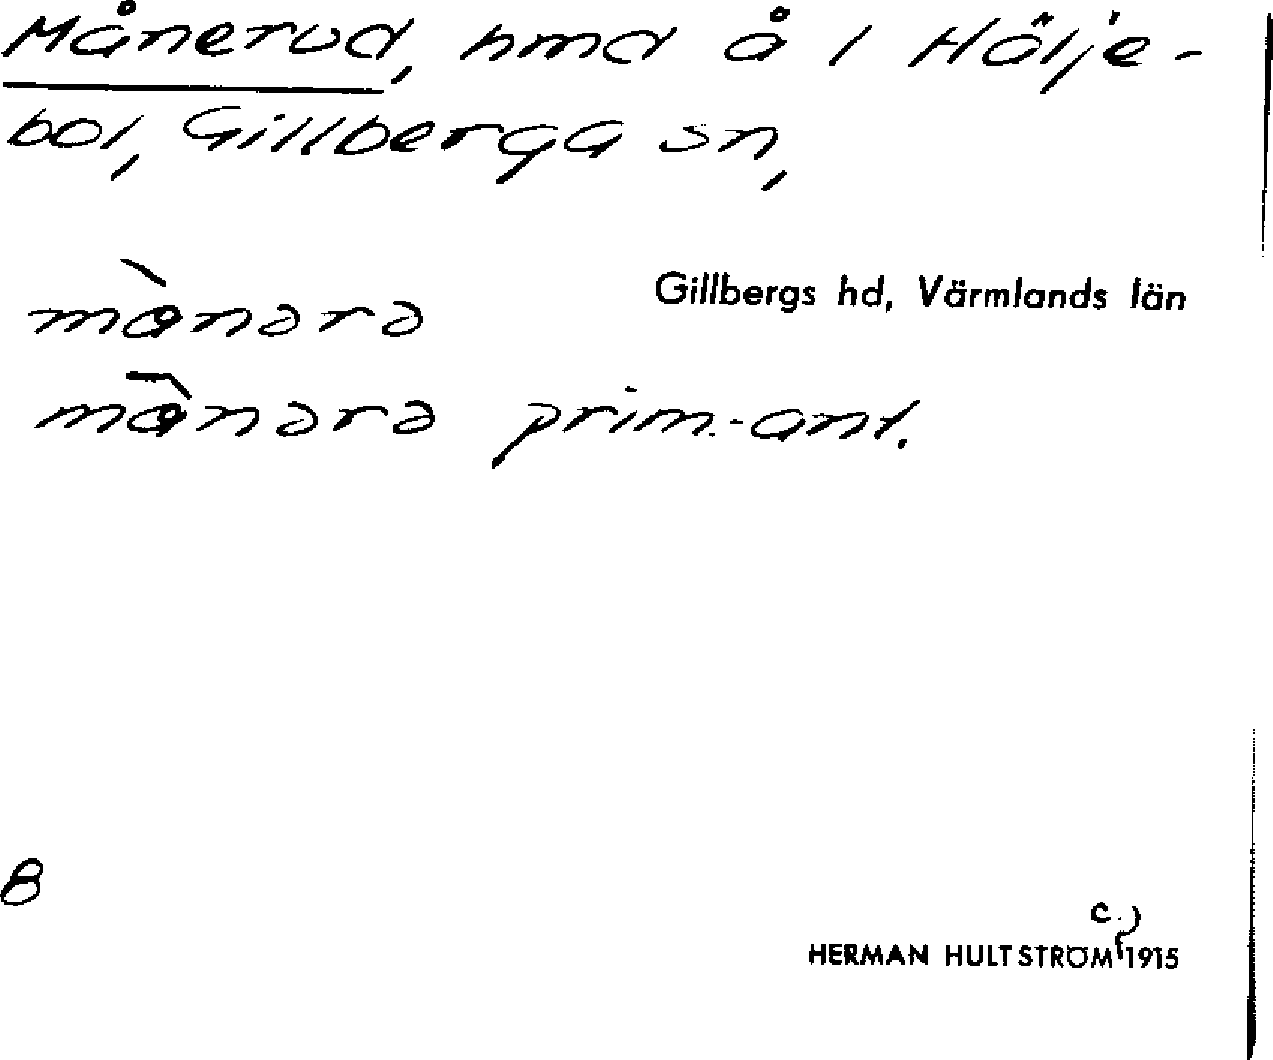 Månerud, hmd å 1 Hölje-
bol, Gillberga sn,
Gillbergs hd, Värmlands län
mànərə
mā̀nərə prim.-ant.
B
c.
HERMAN HULTSTRÖM 1915